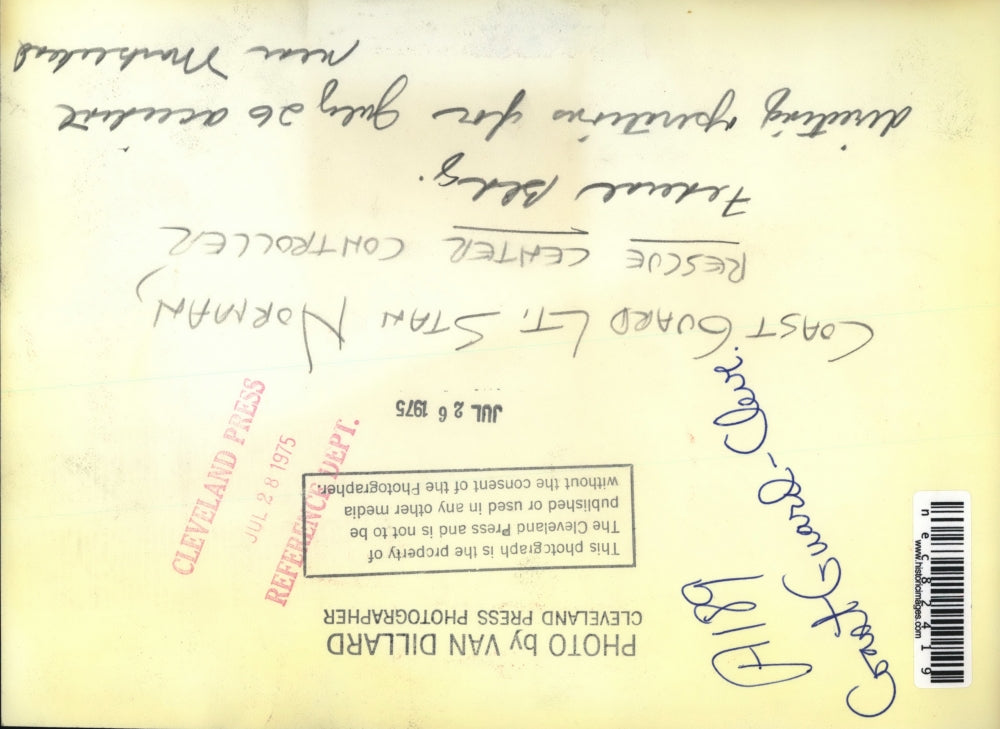 PHOTO by VAN DILLARD
CLEVELAND PRESS PHOTOGRAPHER
This photograph is the property of
The Cleveland Press and is not to be
published or used in any other media
without the consent of the Photographer.
JUL 26 1975
COAST GUARD LT. STAN NORMAN,
RESCUE CENTER CONTROLLER
Federal Bldg.
directing operations for July 26 accident
near Marblehead
CLEVELAND PRESS
JUL 28 1975
REFERENCE DEPT.
A189
Coast Guard - Cleve.
nec82419
www.historicimages.com